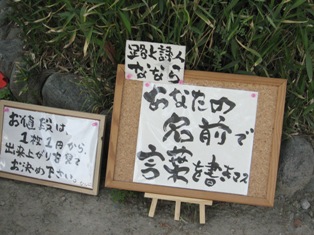 路上詩人
ななら
あなたの
名前で
言葉を書きマス
お値段は、
1枚1円から
出来上がりを見て
お決め下さい。